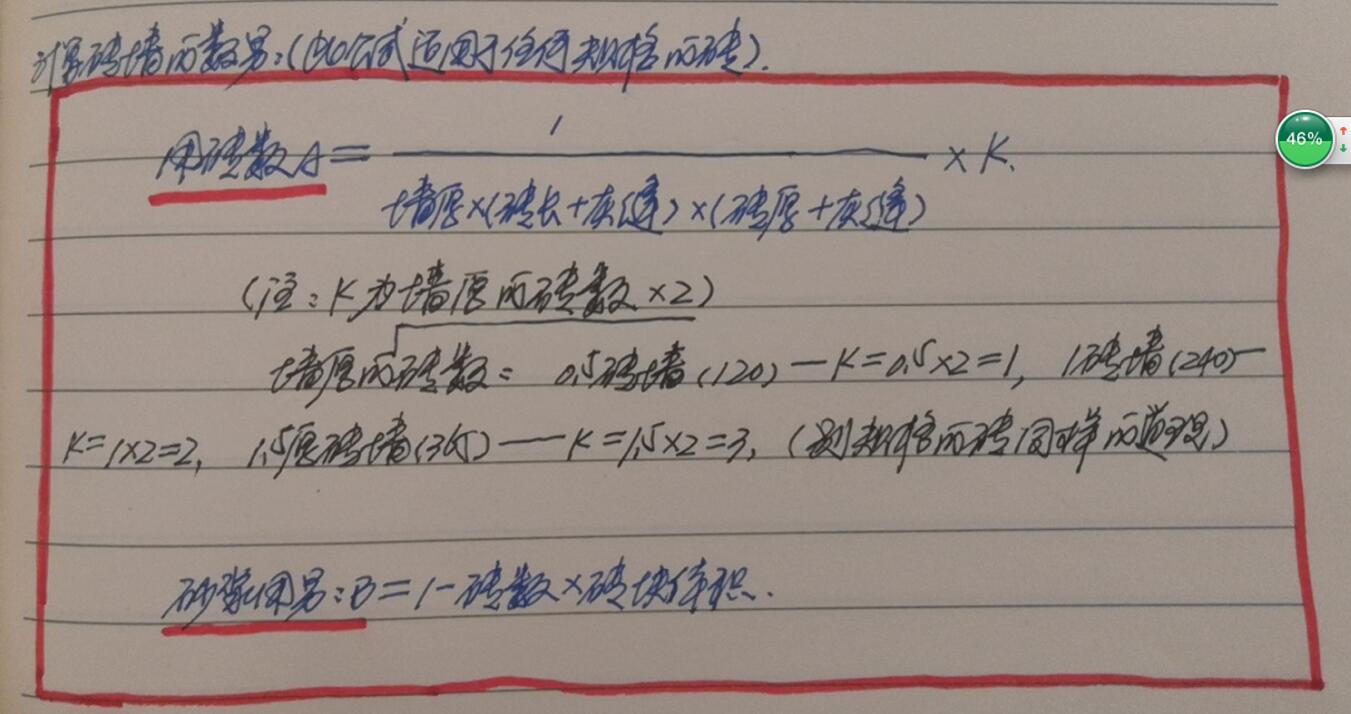 计算砖墙的数量:(此公式适用于任何规格的砖).
用砖数A= 1 / 墙厚×(砖长+灰缝)×(砖厚+灰缝) ×K.
(注:K为墙厚的砖数×2)
墙厚的砖数: 0.5砖墙(120)—K=0.5×2=1, 1砖墙(240)—
K=1×2=2, 1.5厚砖墙(365)——K=1.5×2=3, (别规格的砖同样的道理)
砂浆用量:B=1-砖数×砖块体积.
46%